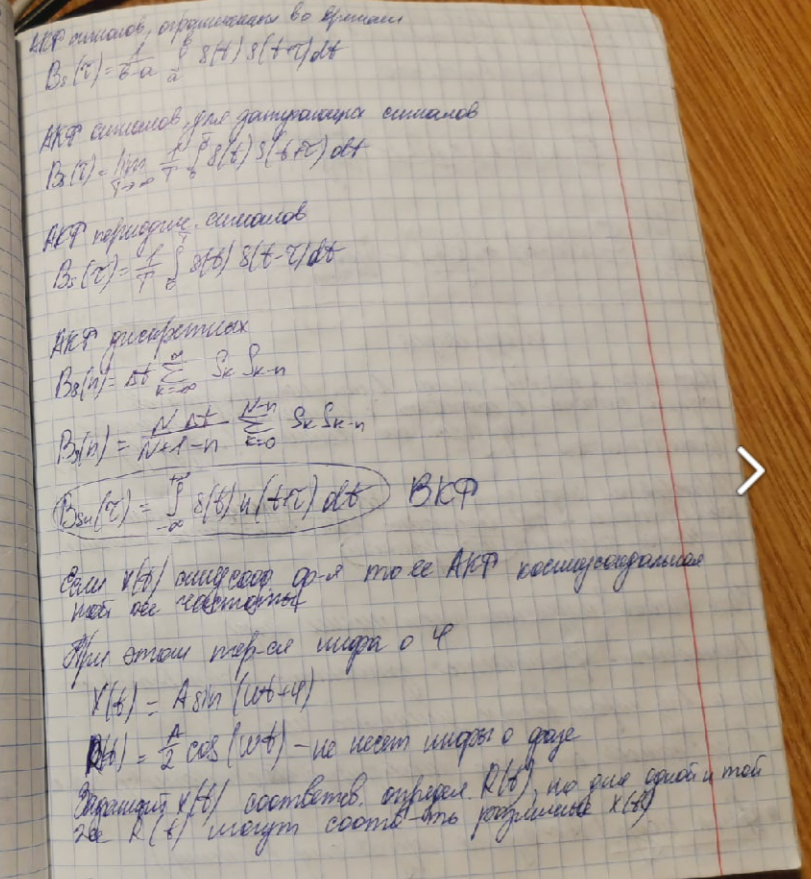 АКФ сигналов, ограниченных во времени
Bs(τ) = 1/(b-a) ∫_a^b s(t) s(t-τ) dt
АКФ сигналов, для затухающих сигналов
Bs(τ) = lim_{T→∞} 1/T ∫_0^T s(t) s(t+τ) dt
АКФ периодич. сигналов
Bs(τ) = 1/T ∫_0^T s(t) s(t-τ) dt
АКФ дискретных
Bs(n) = Δt ∑_{k=-∞}^∞ Sk Sk-n
Bs(n) = N Δt/(N+1-n) ∑_{k=0}^{N-n} Sk Sk-n
Bsu(τ) = ∫_{-∞}^{+∞} s(t) u(t+τ) dt ВКФ
Если x(t) ф-я то ее АКФ косинусоидальная
той же частоты
При этом тер-ся инфа о φ
X(t) = A sin (ωt+φ)
R(t) = A/2 cos (ωt) – не несет инфы о фазе
x(t) соответств. определ. R(t), но для одной и той
же R(t) могут соотв-ть различные x(t)